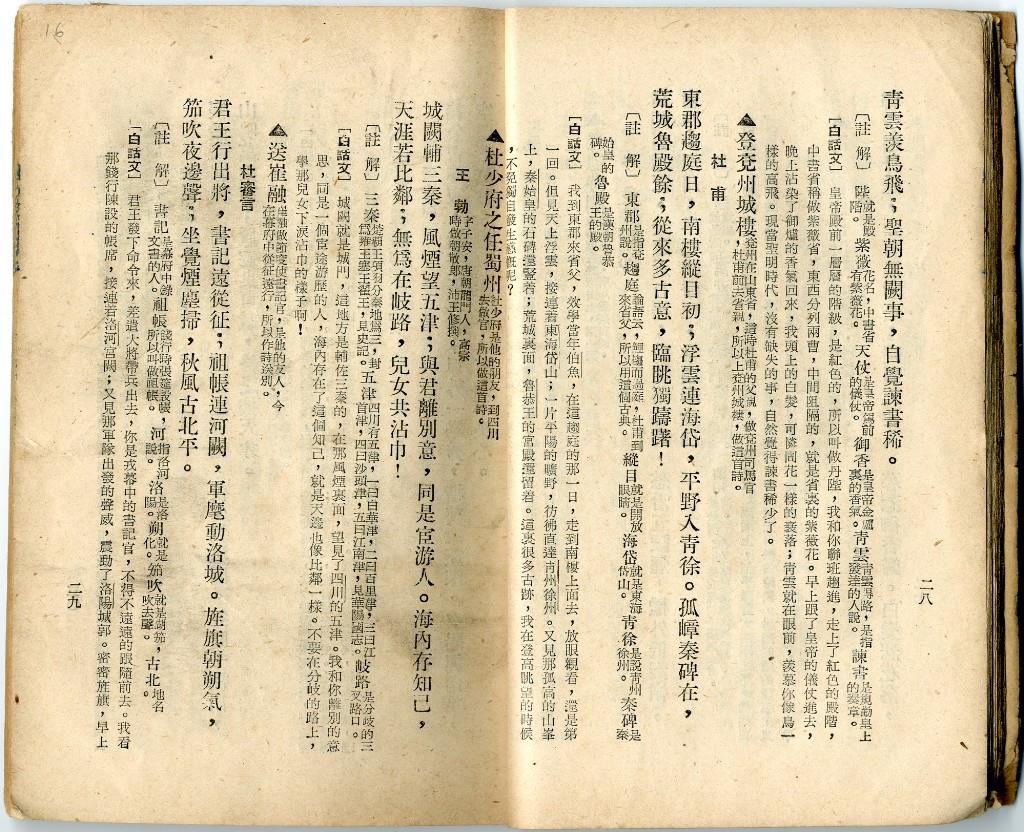 16
青雲羨鳥飛;聖朝無闕事,自覺諫書稀。
〔註 解〕 陛就是殿階。紫薇花名,中書省有紫薇花。天仗是皇帝錫前的儀仗。御香是皇帝金爐裏的香氣。青雲青雲得路,是指發達的人說。諫書是規勸皇上的奏章。
〔白話文〕 皇帝殿前一層層的階級,是紅色的,所以叫做丹陛,我和你聯班趨進,走上了紅色的殿階,
中書省稱做紫薇省,東西分列兩曹,中間阻隔的,就是省裏的紫薇花。早上跟了皇帝的儀仗進去,
晚上沾染了御爐的香氣回來,我頭上的白髮,可隨同花一樣的衰落;青雲就在眼前,羨慕你像鳥一
樣的高飛。現當聖明時代,沒有缺失的事,自然覺得諫書稀少了。
▲登兗州城樓兗州在山東省,這時杜甫的父親,做兗州司馬官,杜甫前去省親,所以上兗州城樓,做這首詩。
杜 甫
東郡趨庭日,南樓縱目初;浮雲連海岱,平野入青徐。孤嶂秦碑在,
荒城魯殿餘;從來多古意,臨眺獨躊躇!
〔註 解〕 東郡是指兗州說。趨庭論語云,鯉趨而過庭,杜甫到來省父,所以用這個古典。縱目就是開放眼睛。海岱就是東海岱山。青徐是說青州徐州。秦碑是秦
始皇的碑。魯殿是漢朝魯恭王的殿。
〔白話文〕 我到東郡來省父,效學當年伯魚,在這趨庭的那一日,走到南樓上面去,放眼觀看,還是第
一回。但見天上浮雲,接連着東海岱山;一片平陽的曠野,彷彿直達青州徐州。又見那孤高的山峯
上,秦始皇的石碑還豎着;荒城裏面,魯恭王的宮殿還留着。這裏很多古跡,我在登高眺望的時候
,不免獨自發生感慨呢?
二八
▲杜少府之任蜀州杜少府是他的朋友,到四川去做官,所以做這首詩。
王 勃字子安,唐朝龍門人,高宗時做朝散郎,沛王修撰。
城闕輔三秦,風煙望五津;與君離別意,同是宦游人。海內存知己,
天涯若比鄰;無爲在岐路,兒女共沾巾!
〔註 解〕 三秦楚霸王項羽分秦地爲三,封爲雍王塞王翟王,見史記。五津四川有五津,一曰白華津,二曰百里津,三曰江首津,四曰沙頭津,五曰江南津,見華陽國志。岐路是分岐的三叉路口。
〔白話文〕 城闕就是城門,這地方是輔佐三秦的,在那風煙裏面,望見了四川的五津。我和你離別的意
思,同是一個宦途游歷的人,海內存在了這個知己,就是天邊也像比鄰一樣。不要在分岐的路上,
學那兒女下淚沾巾的樣子啊!
▲送崔融崔融做節度使書記官,是他的友人,今在幕府中從征遠行,所以作詩送別。
杜審言
君王行出將,書記遠從征;祖帳連河闕,軍麾動洛城。旌旗朝朔氣,
笳吹夜邊聲;坐覺煙塵掃,秋風古北平。
〔註 解〕 書記是幕府中錄文書的人。祖帳餞行時張筵設帳,所以叫做祖帳。河指洛河說。洛是洛陽。朔就是朔化。笳吹就是胡笳,吹去聲。古北地名
〔白話文〕 君王發下命令來,差遣大將帶兵出去,你是戎幕中的書記官,不得不遠遠的跟隨前去。我看
那餞行陳設的帳席,接連着洛河宮闕;又見那軍隊出發的聲威,震動了洛陽城郭。密密旌旗,早上
二九